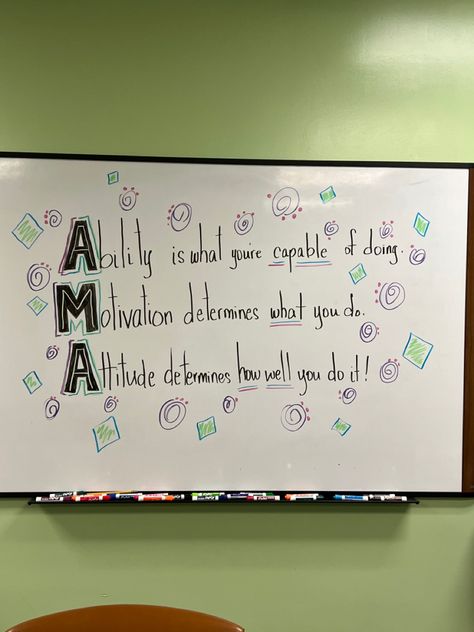 Ability is what you're capable of doing.
Motivation determines what you do.
Attitude determines how well you do it!